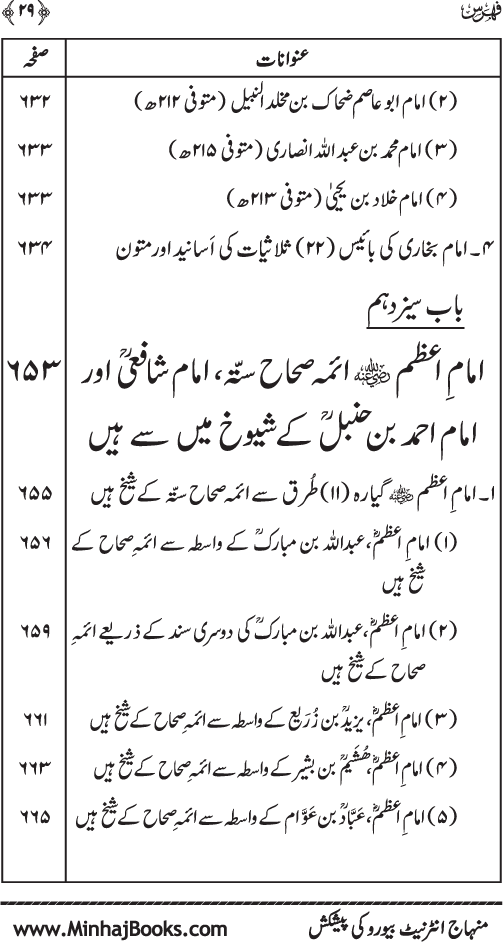 فہرس ﴿۲۹﴾
عنوانات صفحہ
(۲) امام ابو عاصم ضحاک بن مخلد النبیل (متوفی ۲۱۲ھ) ۶۳۲
(۳) امام محمد بن عبد اللہ انصاری (متوفی ۲۱۵ھ) ۶۳۳
(۴) امام خلاد بن یحییٰ (متوفی ۲۱۳ھ) ۶۳۳
۴۔ امام بخاری کی بائیس (۲۲) ثلاثیات کی اَسانید اور متون ۶۳۴
باب سیزدہم
امامِ اعظم رضی اللہ عنہ ائمہ صحاح ستّہ، امام شافعیؒ اور ۶۵۳
امام احمد بن حنبلؒ کے شیوخ میں سے ہیں
۱۔ امامِ اعظم رضی اللہ عنہ گیارہ (۱۱) طُرق سے ائمہ صحاح ستّہ کے شیخ ہیں ۶۵۵
(۱) امامِ اعظمؓ، عبداللہ بن مبارکؒ کے واسطہ سے ائمہِ صحاح کے ۶۵۶
شیخ ہیں
(۲) امامِ اعظمؓ، عبداللہ بن مبارکؒ کی دوسری سند کے ذریعے ائمہِ ۶۵۹
صحاح کے شیخ ہیں
(۳) امامِ اعظمؓ، یزیدؒ بن زُرَیع کے واسطہ سے ائمہِ صحاح کے شیخ ہیں ۶۶۱
(۴) امامِ اعظمؓ، ھُشَیمؒ بن بشیر کے واسطہ سے ائمہِ صحاح کے شیخ ہیں ۶۶۳
(۵) امامِ اعظمؓ، عبَّادؒ بن عَوَّام کے واسطہ سے ائمہِ صحاح کے شیخ ہیں ۶۶۵
منہاج انٹرنیٹ بیورو کی پیشکش www.MinhajBooks.com